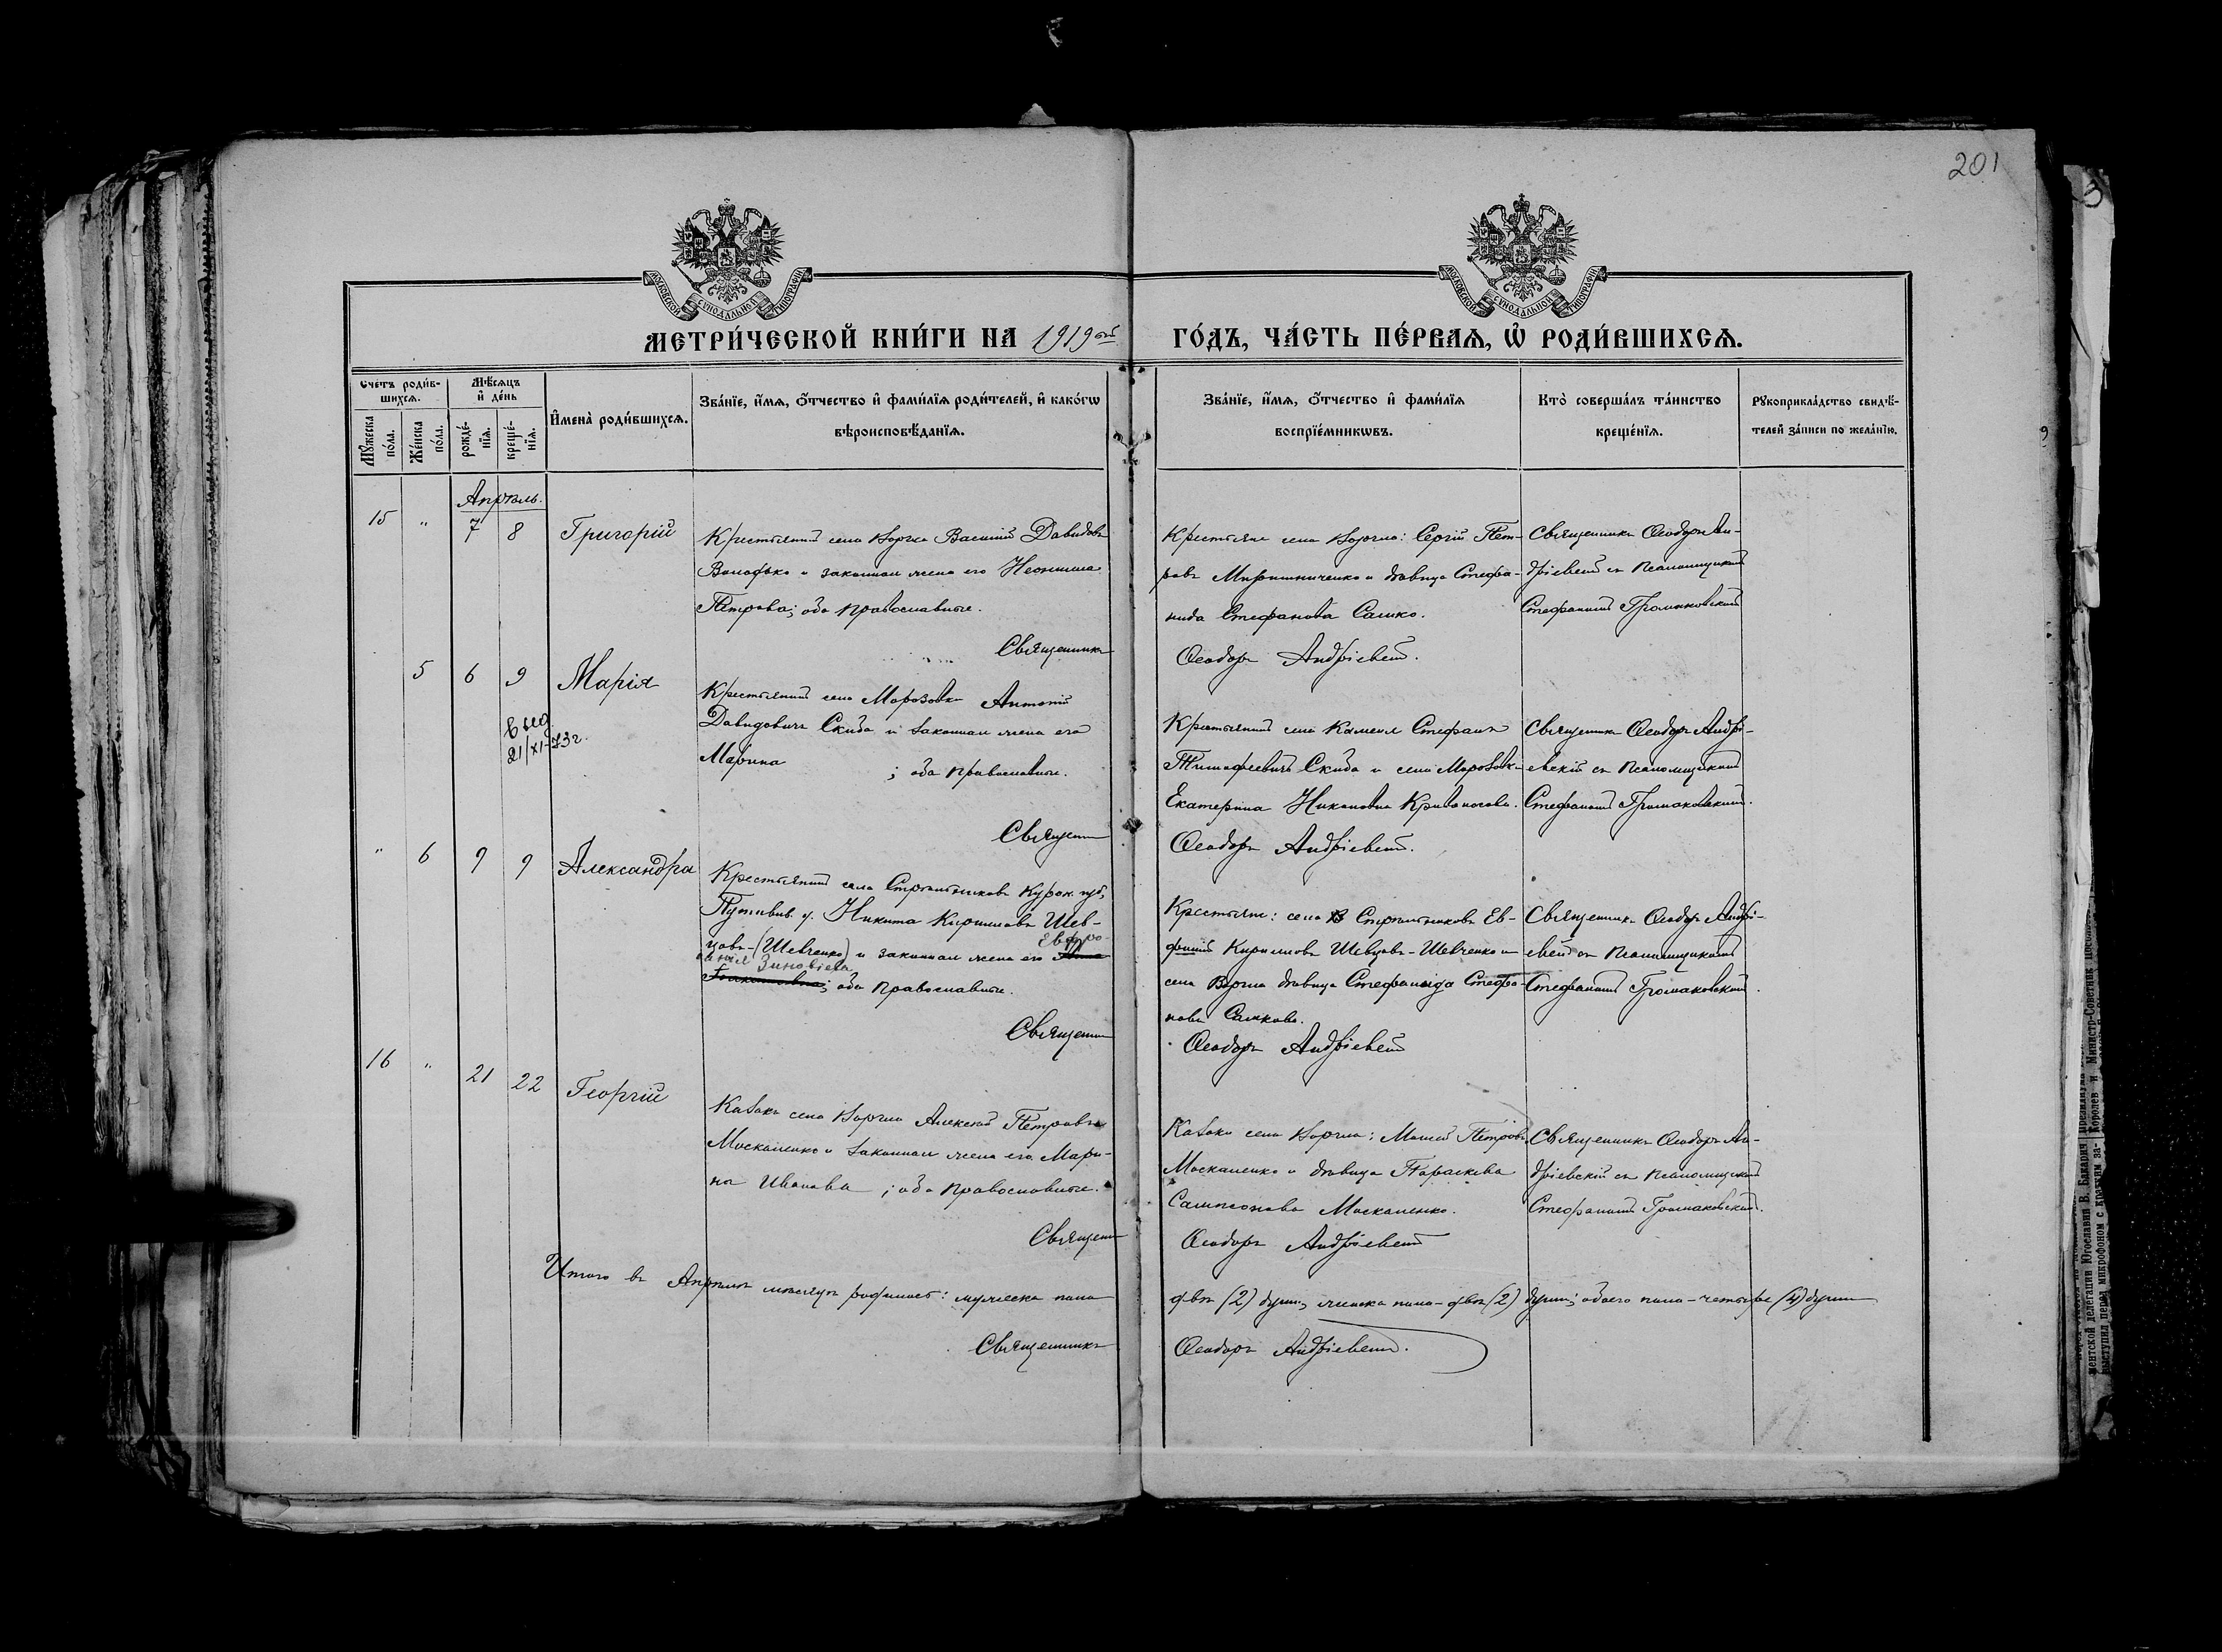 201
МОСКОВСКОЙ СѴНОДАЛЬНОЙ ТИПОГРАФІИ
МОСКОВСКОЙ СѴНОДАЛЬНОЙ ТИПОГРАФІИ
МЕТРИ́ЧЕСКОЙ КНИ́ГИ НА 1919ый ГО́ДЪ, ЧА́СТЬ ПЕ́РВАѦ, Ѡ҆ РОДИ́ВШИХСѦ.
Счетъ роди́в-
шихсѧ.
Мꙋжеска по́ла.
Же́нска по́ла.
Мѣ́сѧцъ и҆ де́нь
рожде́-
нїѧ.
креще́-
нїѧ.
И҆мена̀ роди́вшихсѧ.
Зва́нїе, и҆́мѧ, ѻ҆́тчество и҆ фами́лїѧ роди́телей, и҆ како́гѡ
вѣроисповѣ́данїѧ.
Зва́нїе, и҆́мѧ, ѻ҆́тчество и҆ фами́лїѧ
воспрїе́мникѡвъ.
Кто̀ соверша́лъ та́инство
креще́нїѧ.
Рꙋкоприкла́дство свидѣ́-
телей за́писи по жела́нїю.
Апрѣль.
15 " 7 8 Григорій
Крестьянинъ села Воргла Василій Давидовъ
и законная жена его
Петрова; оба православные.
Священникъ
Крестьяне села Воргла: Сергій Пет-
ровъ Мирошниченко и дѣвица Стефа-
нида Стефанова Сашко.
Ѳеодоръ Андріевскій.
Священникъ Ѳеодоръ Ан-
дріевскій съ псаломщикомъ
Стефаномъ Громаковскимъ
5 6 9 Марія
Выд.
21/XI-73г.
Крестьянинъ села Морозовки Антоній
Давидовичъ Скиба и законная жена его
Марина ; оба православные.
Священникъ
Крестьянинъ села Камня Стефанъ
Тимофеевичъ Скиба и села Морозовки
Екатерина Никоновна Кривоносова.
Ѳеодоръ Андріевскій.
Священникъ Ѳеодоръ Андрі-
евскій съ псаломщикомъ
Стефаномъ Громаковскимъ.
" 6 9 9 Александра
Крестьянинъ села Стрѣльниковъ Курск. губ.,
Путивл. у. Никита Кирилловъ Шев-
цовъ-(Шевченко) и законная жена его Евфро-
синія Зиновіева; оба православные.
Священникъ
Крестьяне: села Стрѣльниковъ Ев-
фимій Кирилловъ Шевцовъ-Шевченко и
села Воргла дѣвица Стефанида Стефа-
нова Сашкова.
Ѳеодоръ Андріевскій
Священникъ Ѳеодоръ Андрі-
евскій съ псаломщикомъ
Стефаномъ Громаковскимъ.
16 " 21 22 Георгій
Казакъ села Воргла Алексѣй Петровъ
Москаленко и законная жена его Мари-
на Иванова ; оба православные.
Священникъ
Казаки села Воргла: Моисей Петровъ
Москаленко и дѣвица Параскева
Сампсонова Москаленко.
Ѳеодоръ Андріевскій
Священникъ Ѳеодоръ Ан-
дріевскій съ псаломщикомъ
Стефаномъ Громаковскимъ.
Итого въ Апрѣлѣ мѣсяцѣ родилось: мужеска пола двѣ (2) души, женска пола-двѣ (2) души; обоего пола-четыре (4) души
Священникъ Ѳеодоръ Андріевскій.